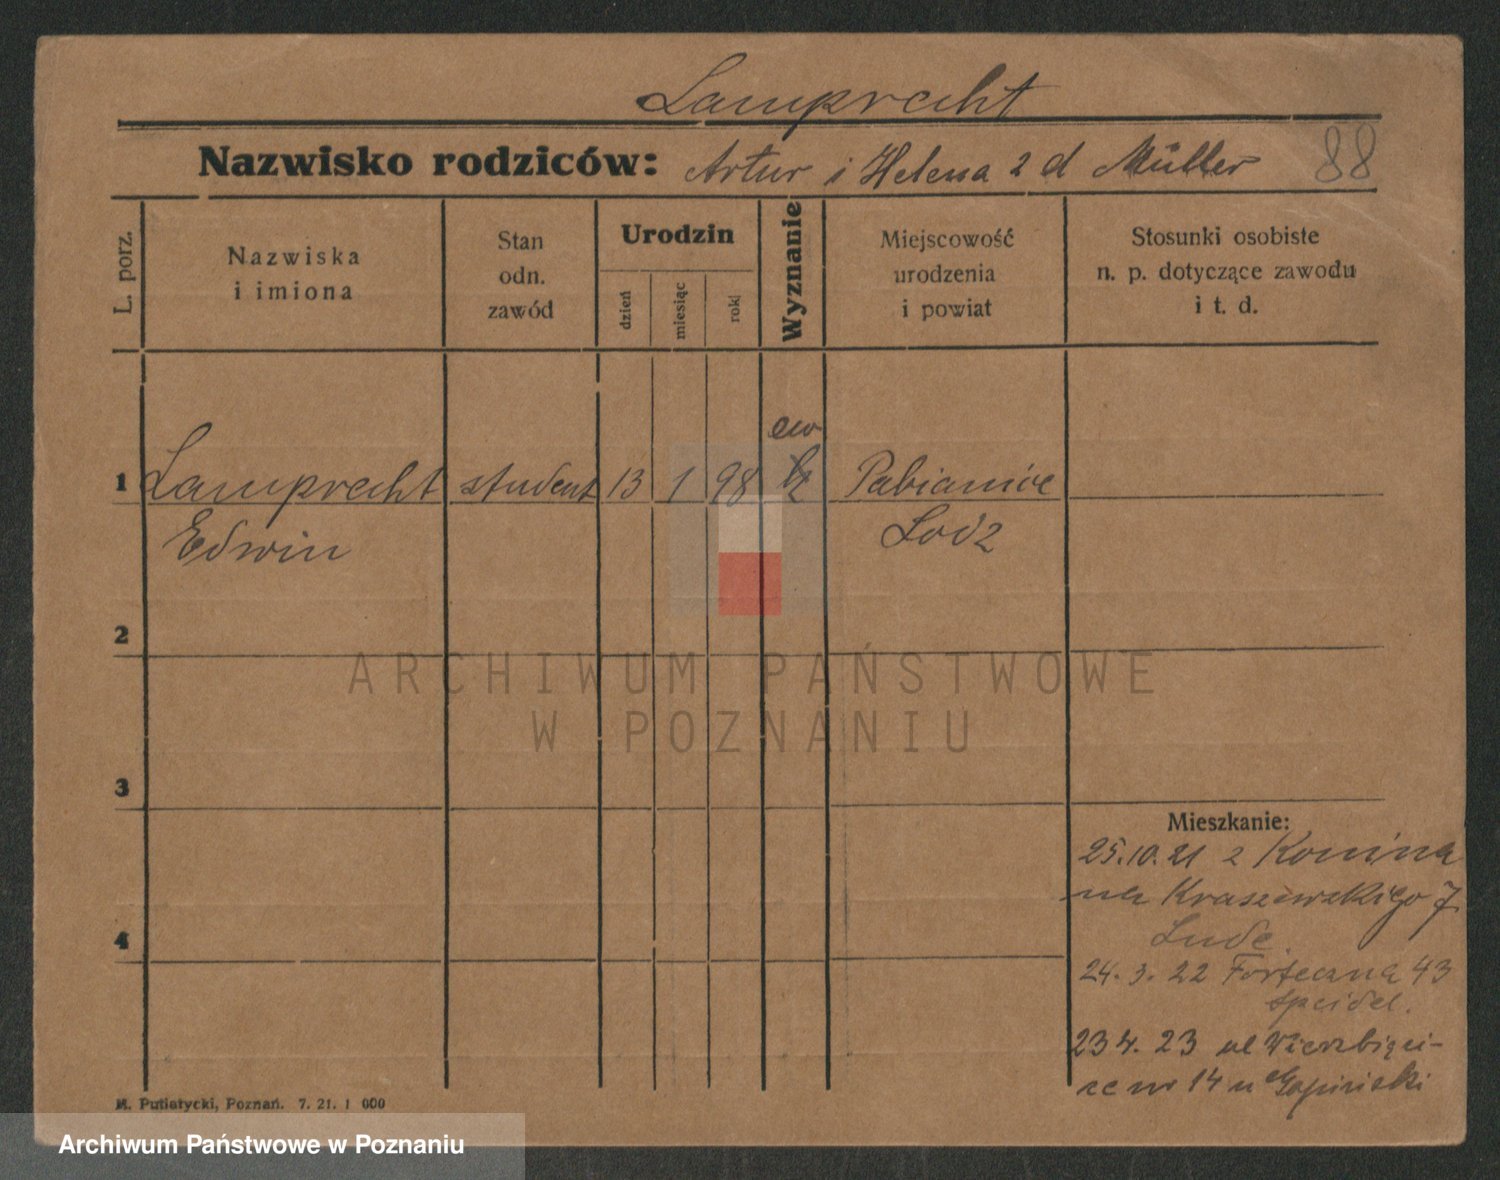 Lamprecht
Nazwisko rodziców: Artur i Helena z d Müller 88
L. porz.
Nazwiska
i imiona
Stan
odn.
zawód
Urodzin
dzień
miesiąc
rok
Wyznanie
Miejscowość
urodzenia
i powiat
Stosunki osobiste
n. p. dotyczące zawodu
i t. d.
ew
1 Lamprecht student 13 1 98 Pabianice
Edwin Lodz
2
3
4
Mieszkanie:
25.10.21 z Konina
na Kraszewskiego 7
Lude
24.3.22 Forteczna 43
Speidel.
23 4. 23 ul Wierzbięci-
ce nr 14 u
M. Putiatycki, Poznań. 7. 21. 1 000
ARCHIWUM PAŃSTWOWE
W POZNANIU
Archiwum Państwowe w Poznaniu